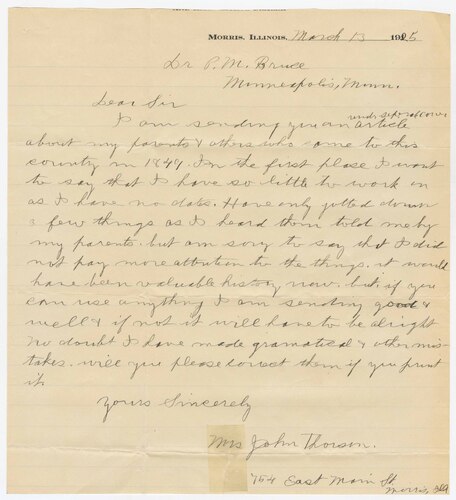 Morris, Illinois, March 13 1925
Dr P. M. Bruce
Minneapolis, Minn.
Dear Sir
under seperat cover
I am sending you an article
about my parents & others who came to this
country in 1849. In the first plase I want
to say that I have so little to work on
as I have no dats. Have only jotted down
a few things as I heard them told me by
my parents. but am sorry to say that I did
not pay more attention to the things. it would
have been valuable history now. but if you
can use anything I am sending good &
well & if not it will have to be alright
No doubt I have made gramatical & other mis-
takes. will you please correct them if you print
it.
Yours Sincerely
Mrs John Thorson.
754 East Main St.
Morris, Ill